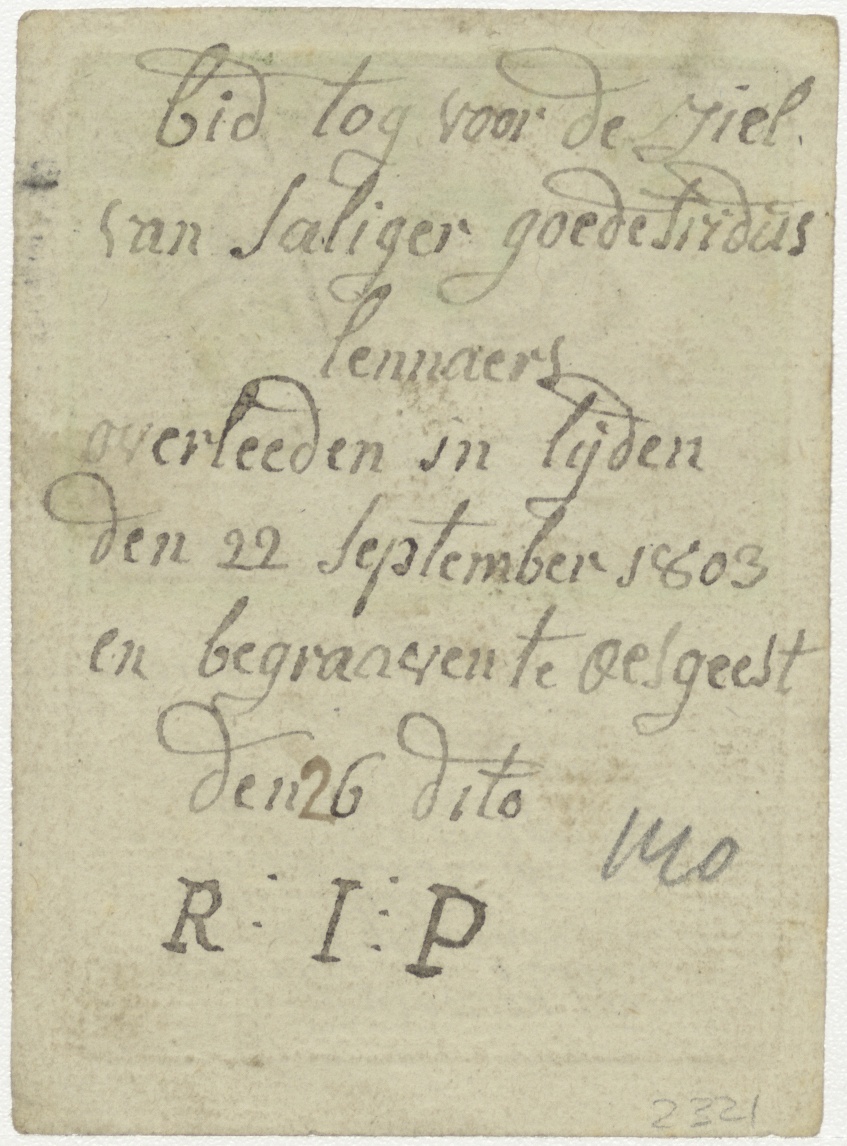 bid tog voor de Ziel.
van Saliger goedefirdus
lennaers
overleeden in lijden
den 22 September 1803
en begraaven te Oesgeest
den 26 dito
R : I : P
2321